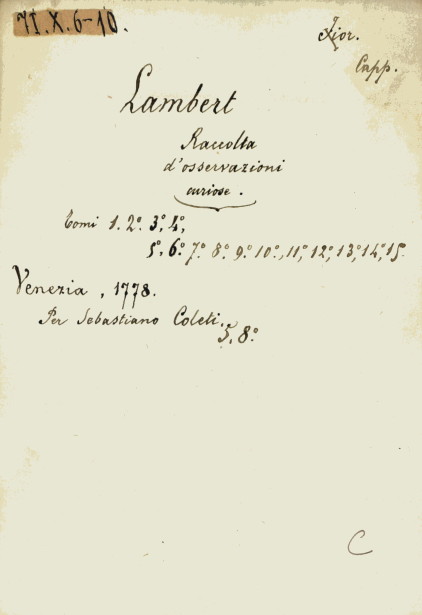 71.X.6-10.
Fior.
Capp.
Lambert
Raccolta
d'osservazioni
curiose.
Tomi 1. 2º. 3º, 4º,
5º. 6º. 7º. 8º. 9º. 10º., 11º, 12º, 13º, 14º, 15.
Venezia, 1778.
Per Sebastiano Coleti.
5, 8º
C